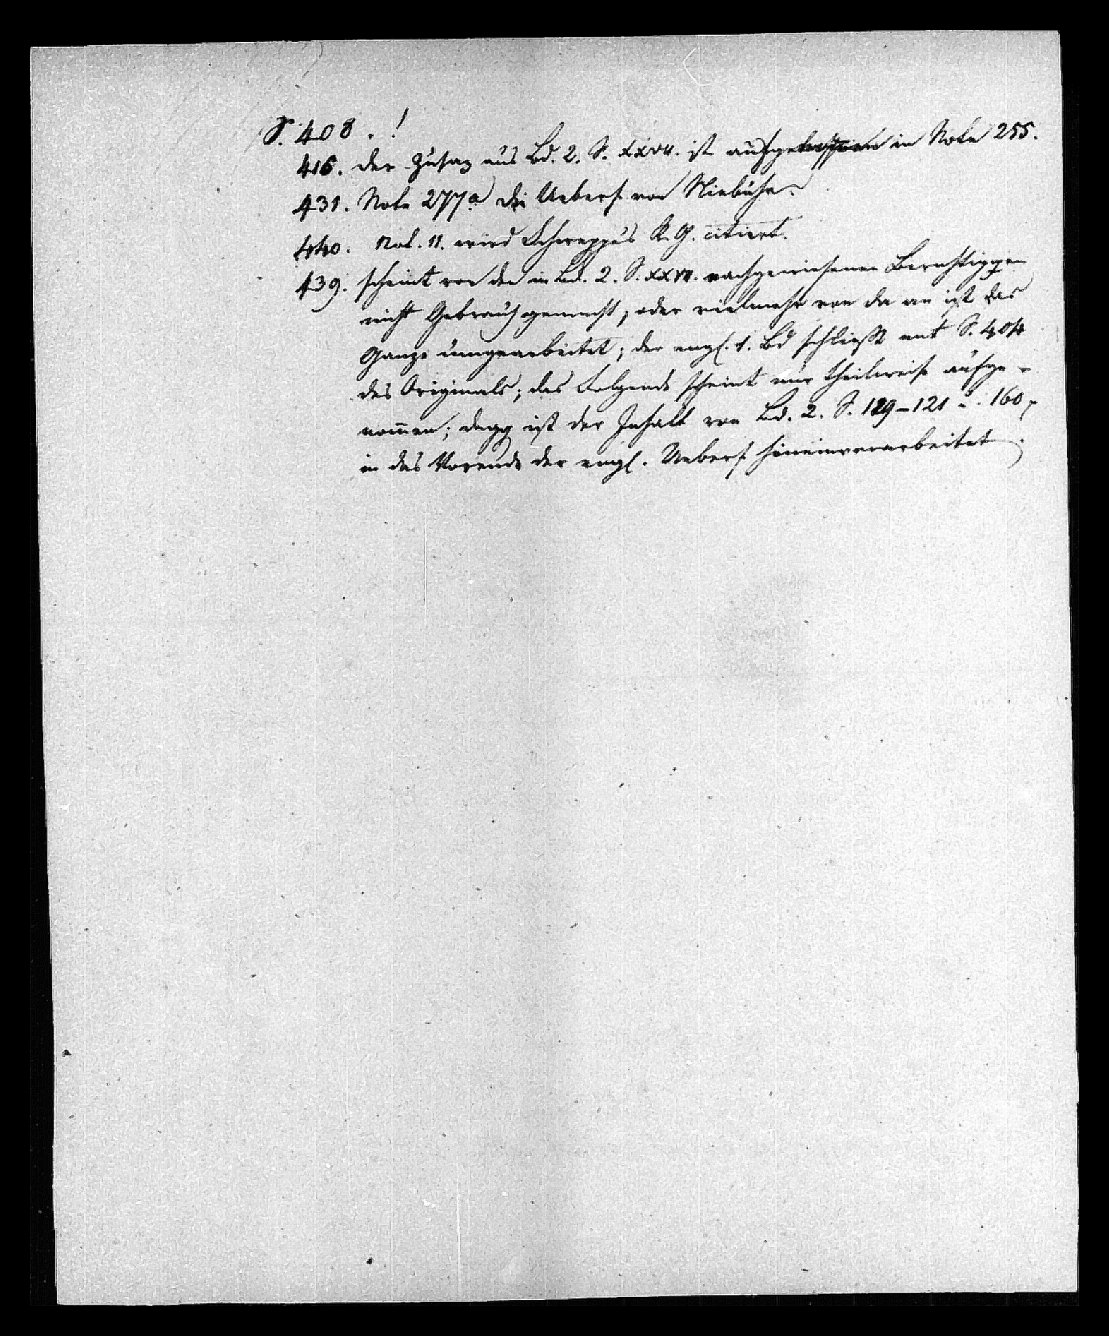 S. 408. !
416. der Zusaz aus Bd. 2. S. XXVII. ist in Note 255.
431. Note 277a die Uebers. von Niebuhr.
440. Not. 11. wird Schweppe's R.G. citiert.
439. scheint von den in Bd. 2. S. XXVII. nachgewiesenen
nicht Gebrauch gemacht, oder vielmehr von da an ist das
Ganze umgearbeitet; der engl. 1. Bd schließt mit S. 404
des Originals; das Folgende scheint nur theilweise aufge-
nommen; dagg ist der Inhalt von Bd. 2. S. 119-121 u. 160,
in das der engl. Uebers. hineinverarbeitet.